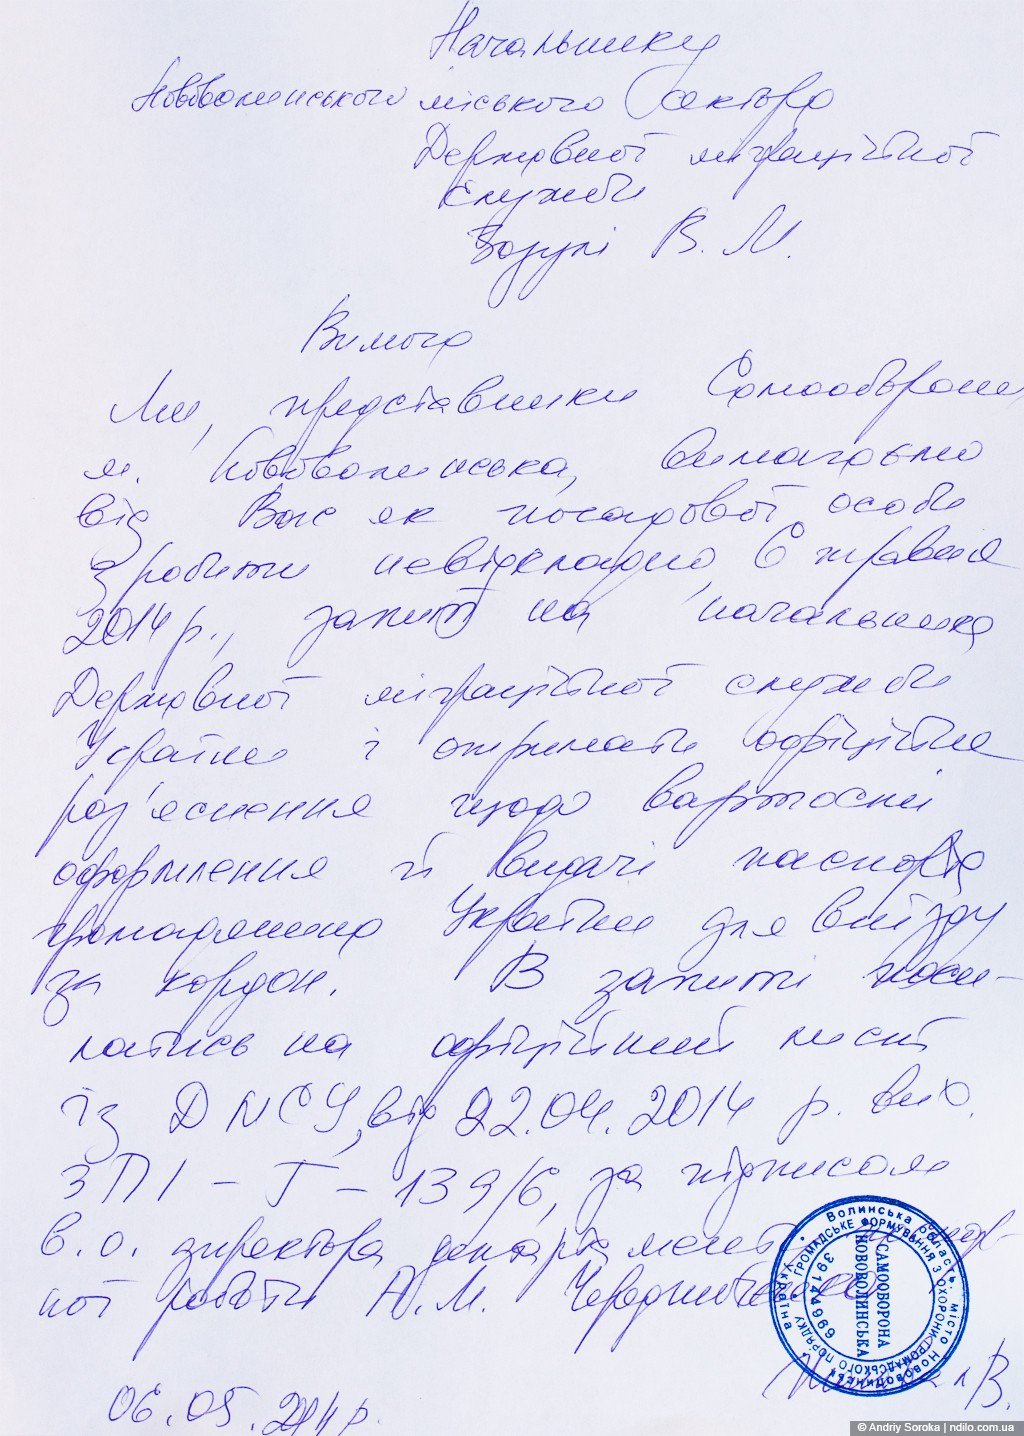 Начальнику
Нововолинського міського сектора
Державної міграційної
служби
Зозулі В. М.
Вимога
Ми, представники Самооборони
м. Нововолинська, вимагаємо
від Вас як посадової особи
зробити невідкладно, 6 травня
2014 р., запит на начальника
Державної міграційної служби
України і отримати офіційне
роз'яснення щодо вартості
оформлення й видачі паспорта
громадянина України для виїзду
за кордон. В запиті поси-
латись на офіційний лист
із ДМСУ, від 22.04.2014 р. вих.
ЗПІ – Т – 139/6, за підписом
в. о. директора департаменту
ної роботи А. М. Чередниченко
Україна * Волинська область, місто Нововолинськ
ГРОМАДСЬКЕ ФОРМУВАННЯ З ОХОРОНИ ГРОМАДСЬКОГО ПОРЯДКУ
САМООБОРОНА
НОВОВОЛИНСЬКА
39144696
В.
06.05.2014 р.
© Andriy Soroka | ndilo.com.ua